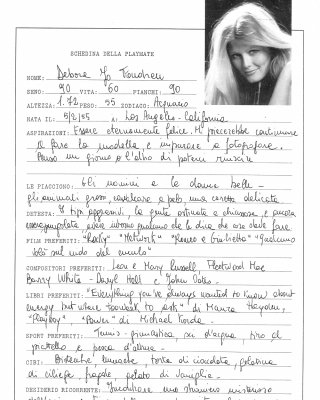 SCHEDINA DELLA PLAYMATE
NOME: Debora Jo Fondren
SENO: 90 VITA: 60 FIANCHI: 90
ALTEZZA: 1.72 PESO: 55 ZODIACO: Acquario
NATA IL: 5/2/55 A: Los Angeles - California
ASPIRAZIONI: Essere eternamente felice. Mi piacerebbe continuare
a fare la modella, e imparare a fotografare.
Penso un giorno o l'altro di poterci riuscire
LE PIACCIONO: Gli uomini e le donne belle -
gli animali grossi, e una carezza delicata
DETESTA: I tipi aggressivi, la gente ostinata e chiassosa, e ancora
che
FILM PREFERITI: "Rocky" "Network" "Romeo e Giulietta" "Qualcuno
volò sul nido del cuculo"
COMPOSITORI PREFERITI: Leon e Mary Russell, Fleetwood Mac
Barry White - Daryl Hall e John Oates -
LIBRI PREFERITI: "Everything you've always wanted to know about
energy but were too weak to ask" di Naura Hayden,
"Playboy", "Power" di Michael Korda -
SPORT PREFERITI: Tennis - ginnastica, sci d'acqua, tiro al
piattello e pesca d'altura -
CIBI: Bistecche enormi, torta di cioccolata, gelatina
di ciliege, fragole, gelato di vaniglia -
DESIDERIO RICORRENTE: Incontrare uno straniero misterioso